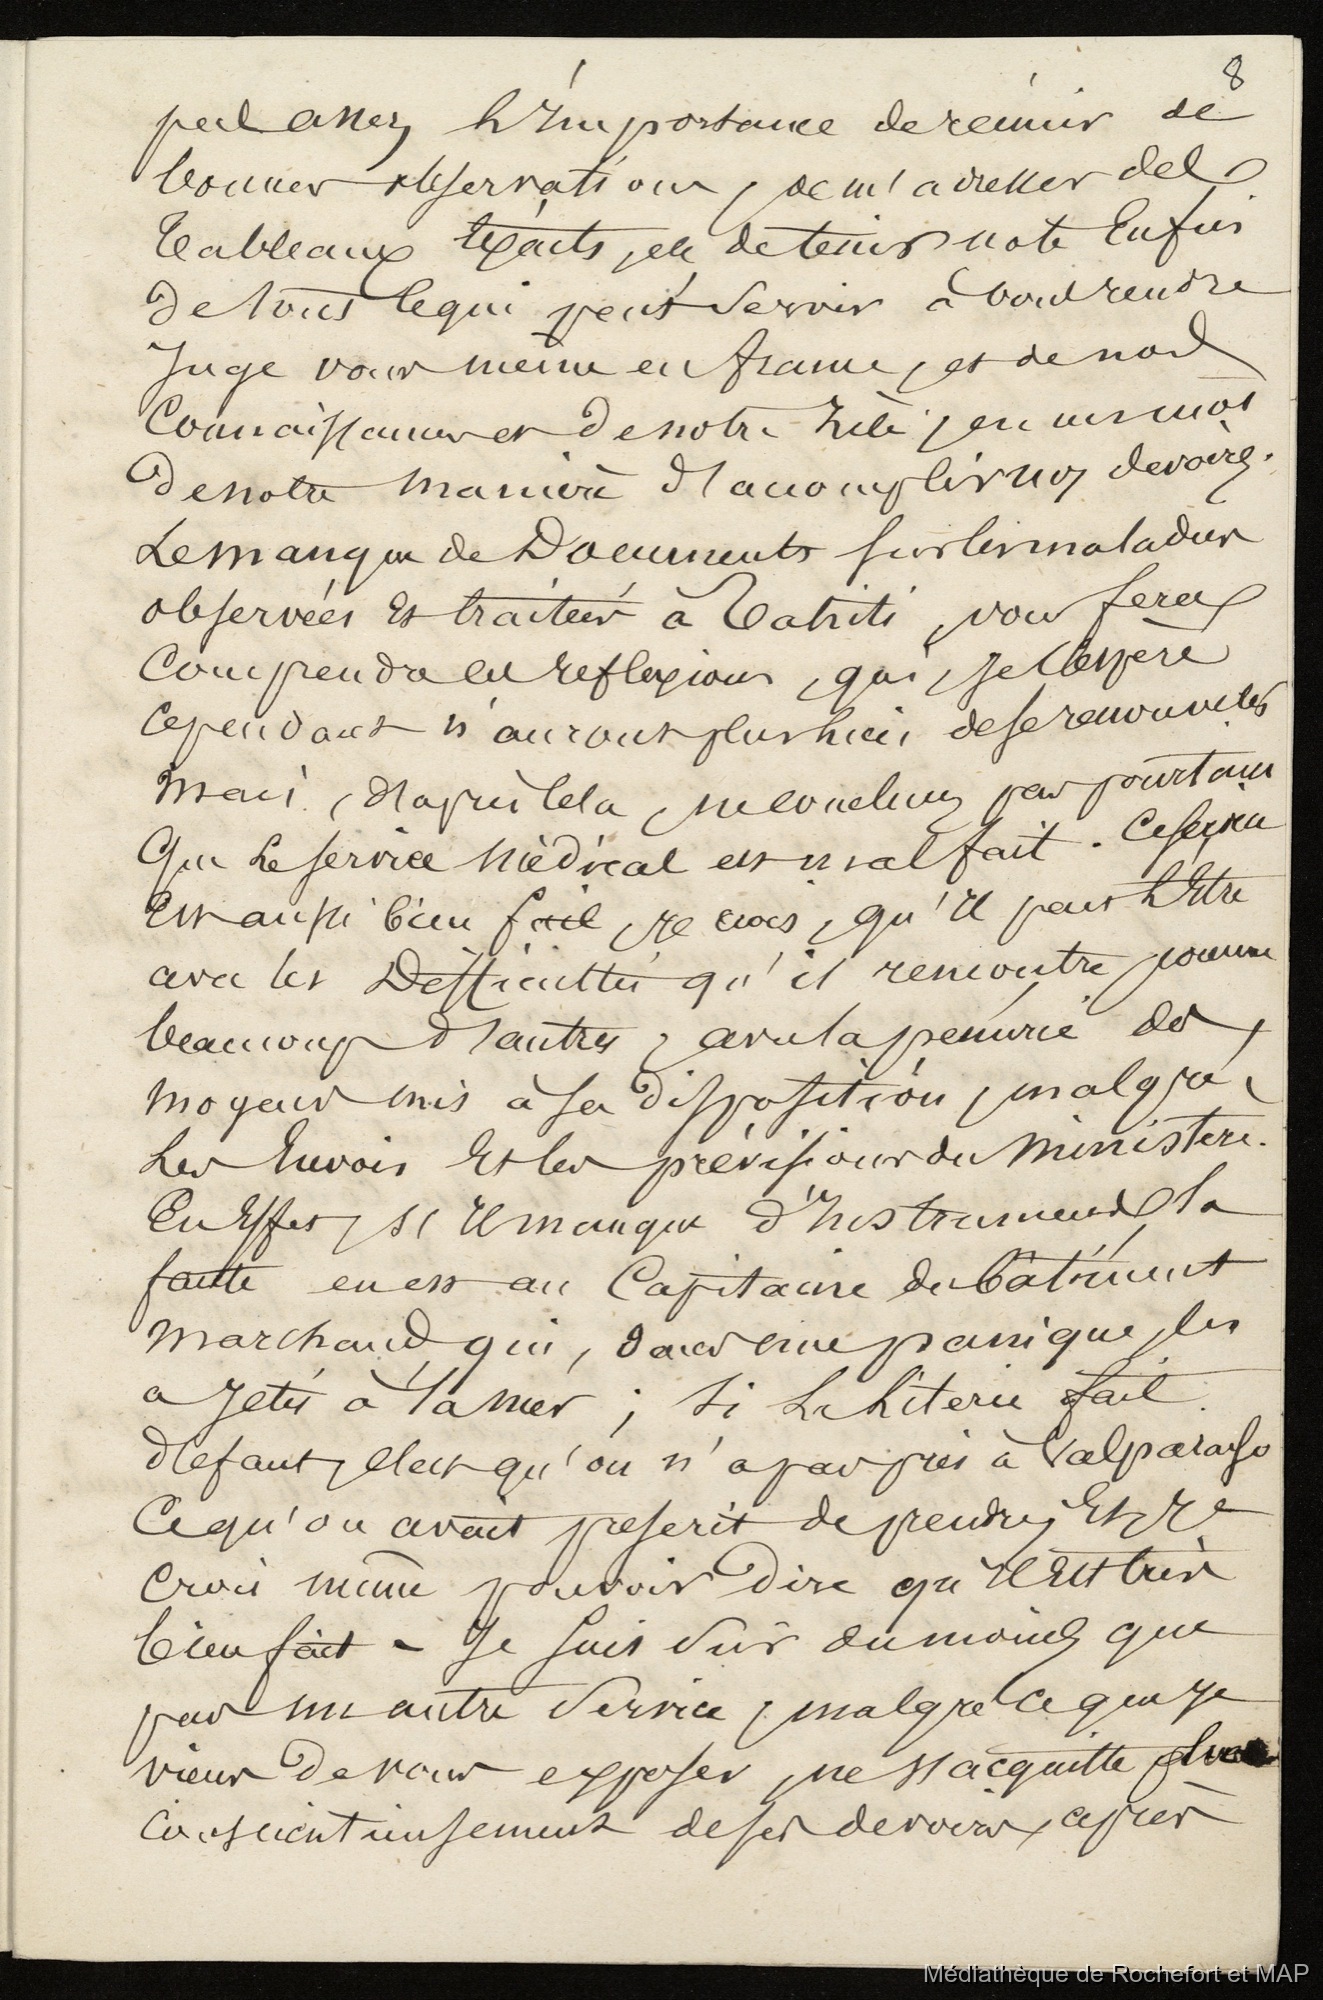 8
pas assez l'importance de réunir de
bonnes observations, de m'adresser des
tableaux exacts, et de tenir note enfin
de tout ce qui peut servir à vous rendre
juge vous même en france, et de nos
connaissances et de notre zèle, en un mot
de notre manière d'accomplir nos devoirs.
Le manque de Documents sur les maladies
observées et traitées à Tahiti, vous fera
comprendre ces réflexions, qui, je l'espère
cependant n'auront plus lieu de se renouveler
mais, d'après cela, ne concluez pas pourtant
que le service médical est mal fait. Ce service
est aussi bien fait, je crois, qu'il peut l'être
avec les Difficultés qu'il rencontre, comme
beaucoup d'autres, avec la pénurie des
moyens mis à sa disposition, malgré
les Envois et les prévisions du Ministère.
En effet, s'il manque d'instruments, la
faute en est au Capitaine du bâtiment
marchand qui, dans une panique, les
a jetés à la mer ; si la literie fait
défaut, c'est qu'on n'a pas pris à Valparaiso
ce qu'on avait prescrit de prendre, Et, je
crois même pouvoir dire qu'il est très
bien fait - Je suis sûr du moins que
pas un autre service, malgré ce que je
viens de vous exposer, ne s'acquitte plus
consciencieusement de ses devoirs, après
Médiathèque de Rochefort et MAP